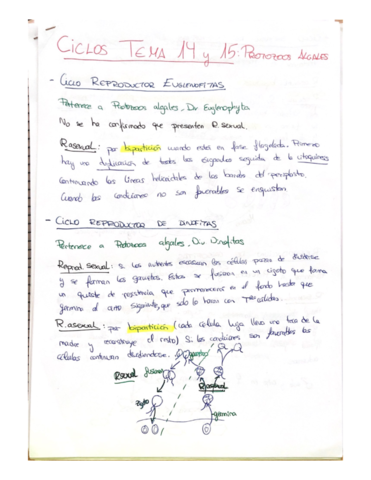 CICLOS TEMA 14 y 15: PROTOZOOS ALGALES
- CICLO REPRODUCTOR EUGLENOFITAS
Pertenece a Protozoos algales, Div Euglenophyta
No se ha confirmado que presenten R. sexual.
R. asexual: por bipartición cuando están en fase flagelada. Primero
hay una duplicación de todos los orgánulos seguida de la citoquinesis
continuando las líneas helicoidales de las bandas del periplasto.
Cuando las condiciones no son favorables se enquistan
- CICLO REPRODUCTOR DE DINOFITAS
Pertenece a Protozoos algales, Div Dinofitas
Reprod sexual: Si los nutrientes escasean las células
y se forman los gametos. Estos se fusionan en un cigoto que forma
un quiste de resistencia que permanecerá en el fondo hasta que
germina al año siguiente, que sólo lo hacen con Tª cálidas.
R. asexual: por bipartición (cada célula hija lleva una teca de la
madre y reconstruye el resto) Si las condiciones son favorables las
células continúan dividiéndose.
gametos
R sexual fusión
R asexual
Zigoto
germina